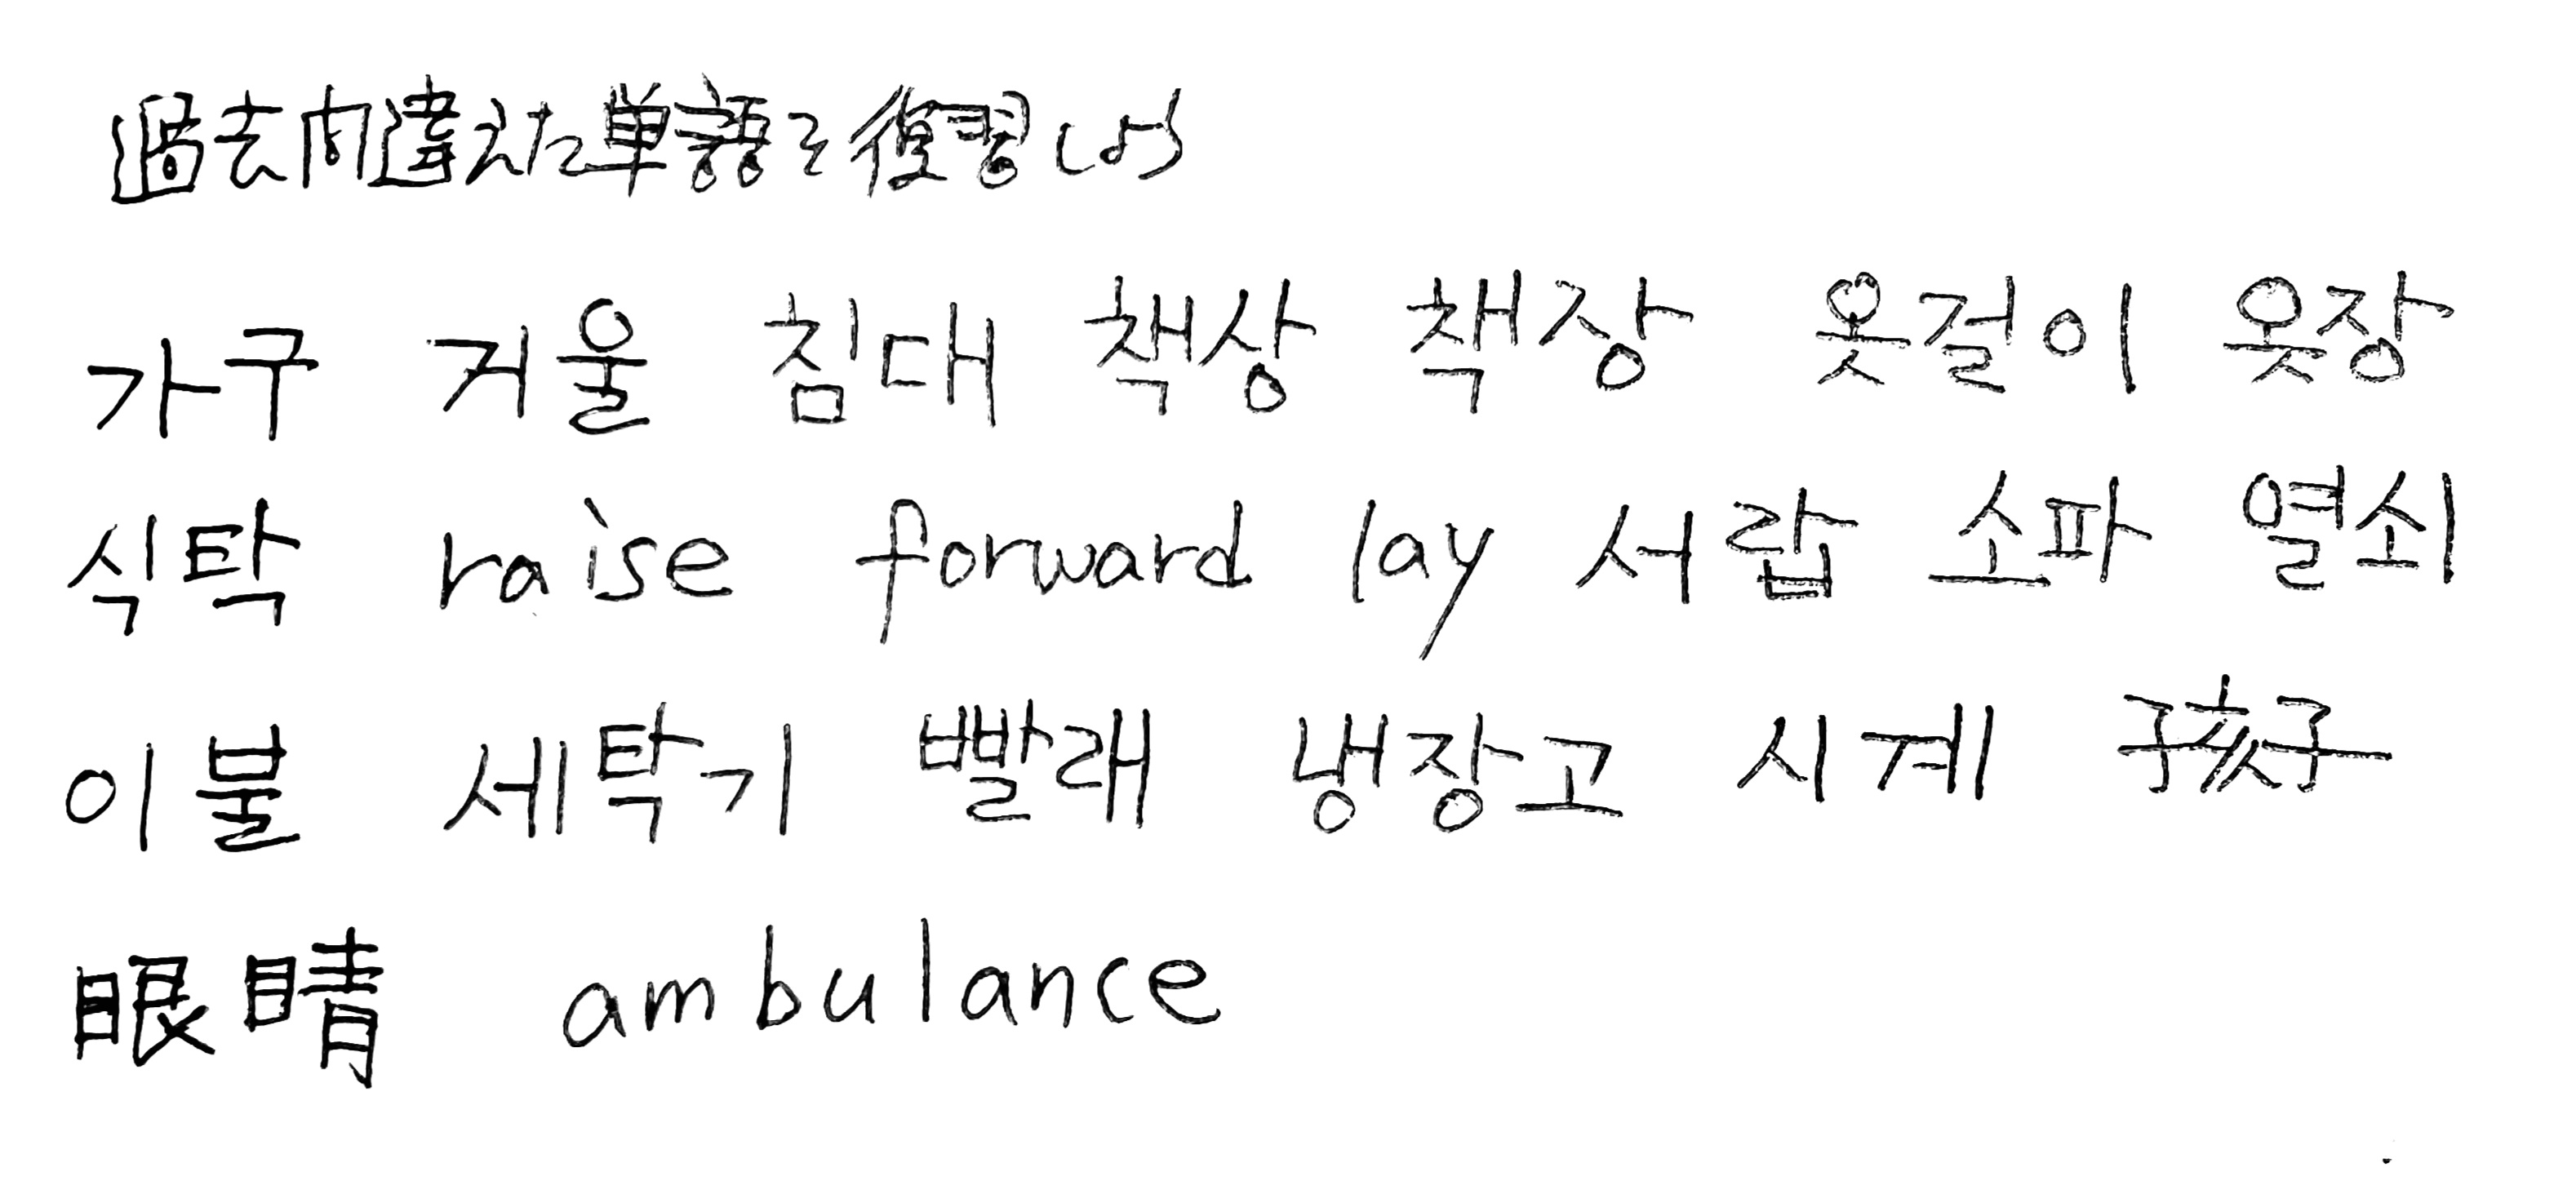 過去間違えた単語を復習しよう
가구 거울 침대 책상 책장 옷걸이 옷장
식탁 raise forward lay 서랍 소파 열쇠
이불 세탁기 빨래 냉장고 시계 孩子
眼睛 ambulance